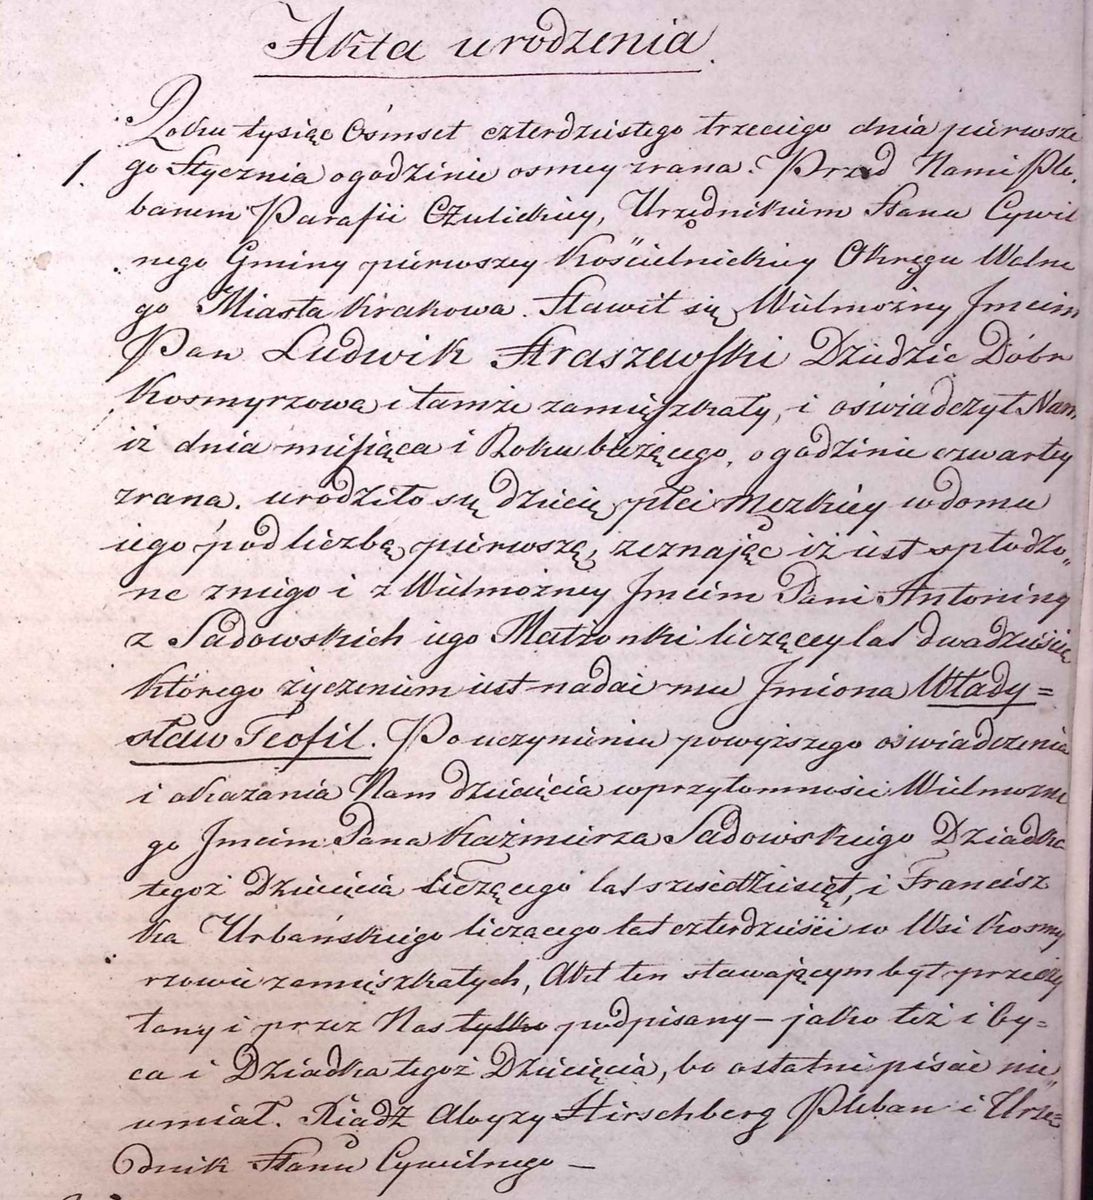 Akta urodzenia.
Roku tysiąc Ośmset czterdziestego trzeciego dnia pierwsze
1. go Stycznia o godzinie osmey zrana. Przed Nami Ple,
banem Parafii Czulickiey, Urzędnikiem Stanu Cywil
nego Gminy pierwszey Kościelnickiey Okręgu Wolne
go Miasta Krakowa. Stawił się Wielmożny Jmcim
Pan Ludwik Straszewski Dziedzic Dóbr
Kosmyrzowa i tamże zamieszkały, i oświadczył Nam,
iż dnia miesiąca i Roku bieżącego, o godzinie czwartey
zrana. urodziło się dziecię płci Męzkiey w domu
iego pod liczbą pierwszą, zeznając iż iest spłodzo„
ne zniego i z Wielmożney Jmcim Pani Antoniny
z Sadowskich iego Małżonki liczącey lat dwadzieścia
którego życzeniem iest nadać mu Jmiona Włady=
sław Teofil. Po uczynieniu powyższego oświadczenia
i okazania Nam dziecięcia w przytomności Wielmożne
go Jmcim Pana Kaźmierza Sadowskiego Dziadka
tegoż Dziecięcia liczącego lat sześćdziesięt, i Francisz
ka Urbańskiego liczącego lat czterdzieści w Wsi Kosmy
rzowie zamięszkałych, Akt ten stawającym był przeczy
tany i przez Nas tylko podpisany – jako też i oy=
ca i Dziadka tegoż Dziecięcia, bo ostatni pisać nie„
umiał. Xiądz Aloyzy Hirschberg Pleban i Urzę=
dnik Stanu Cywilnego –